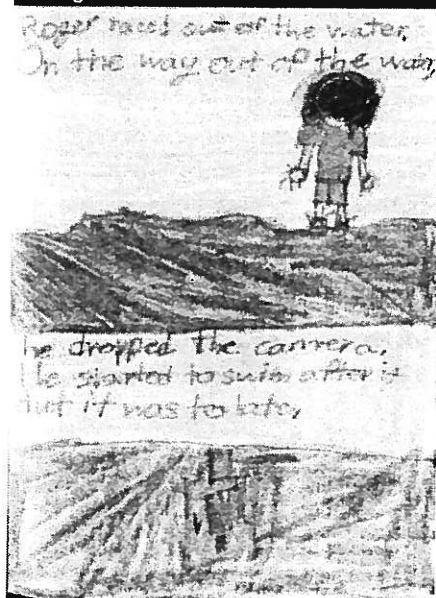 Roger raced out of the water.
On the way out of the water
he dropped the camera.
He started to swim after it
but it was to late.